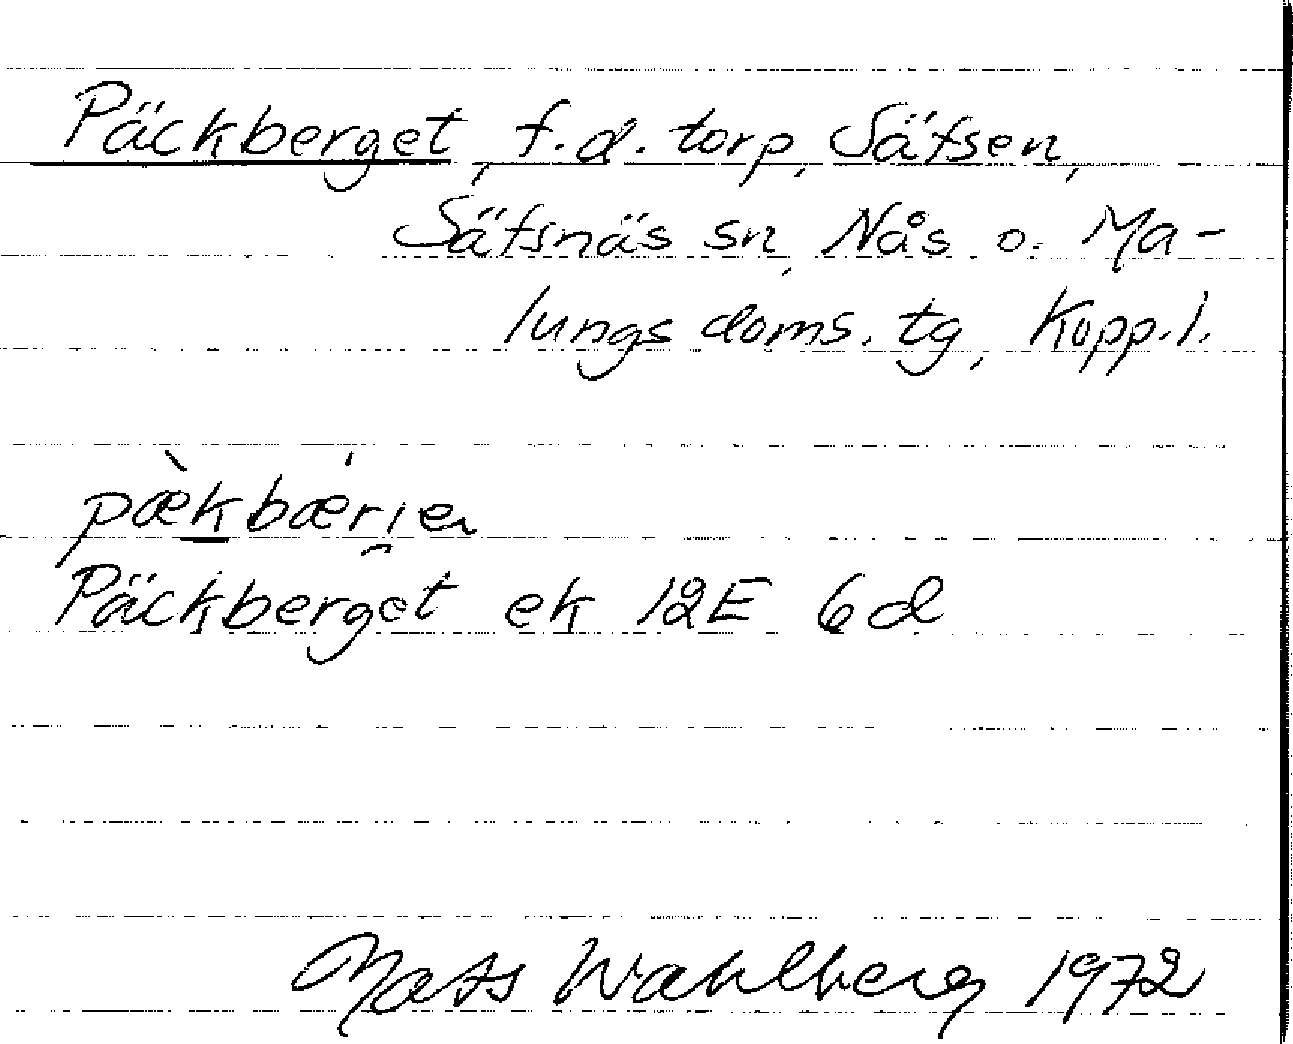 Päckberget, f.d. torp, Säfsen,
Säfsnäs sn, Nås o. Ma-
lungs doms. tg, Kopp. l.
pæ̀kbær̂į́en
Päckberget ek 12E 6d
Mats Wahlberg 1972